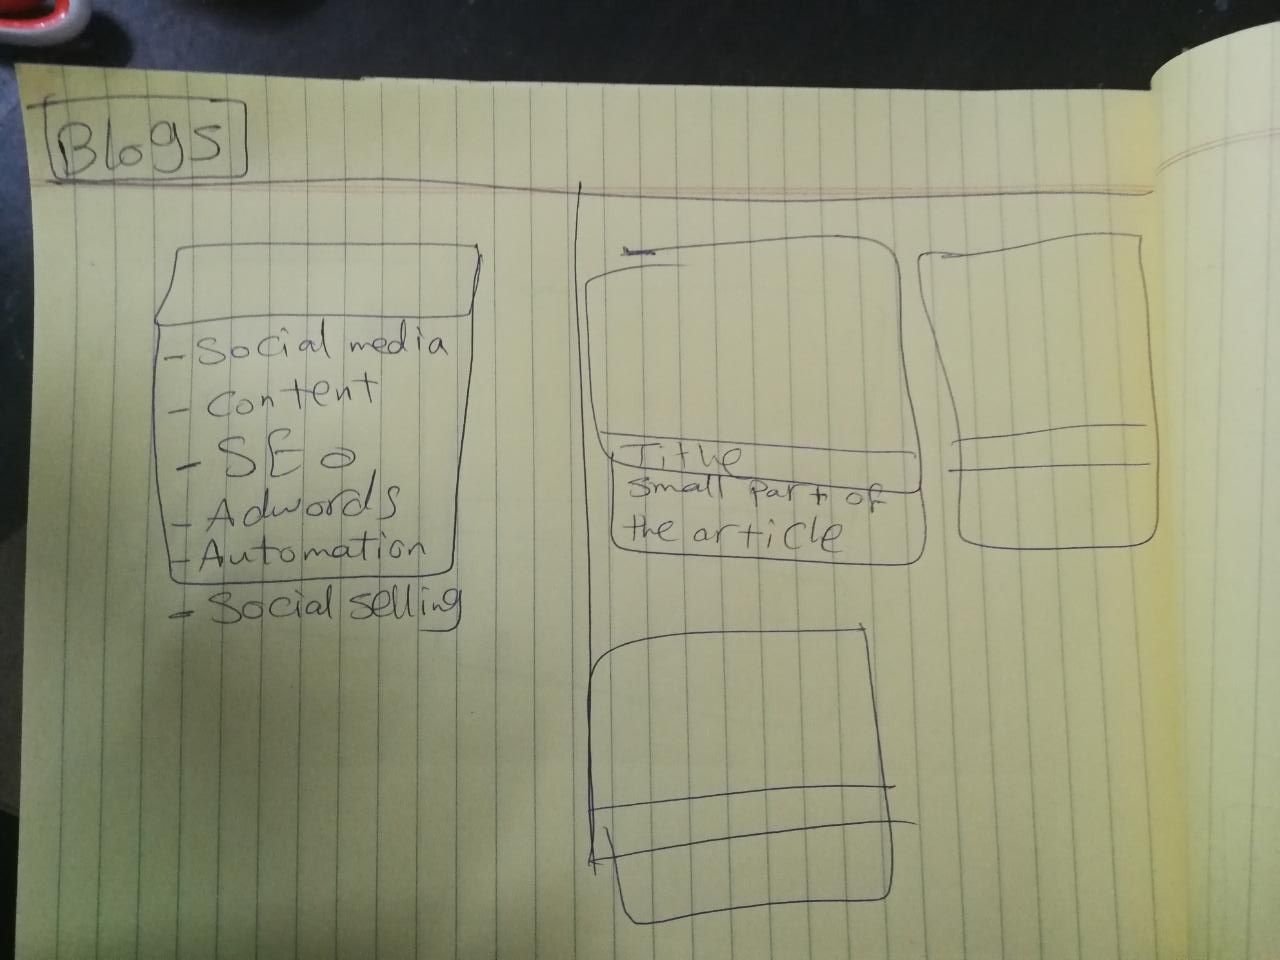 Blogs
- Social media
- Content
- SEO
- Adwords
- Automation
- Social selling
Tithe
small part of
the article